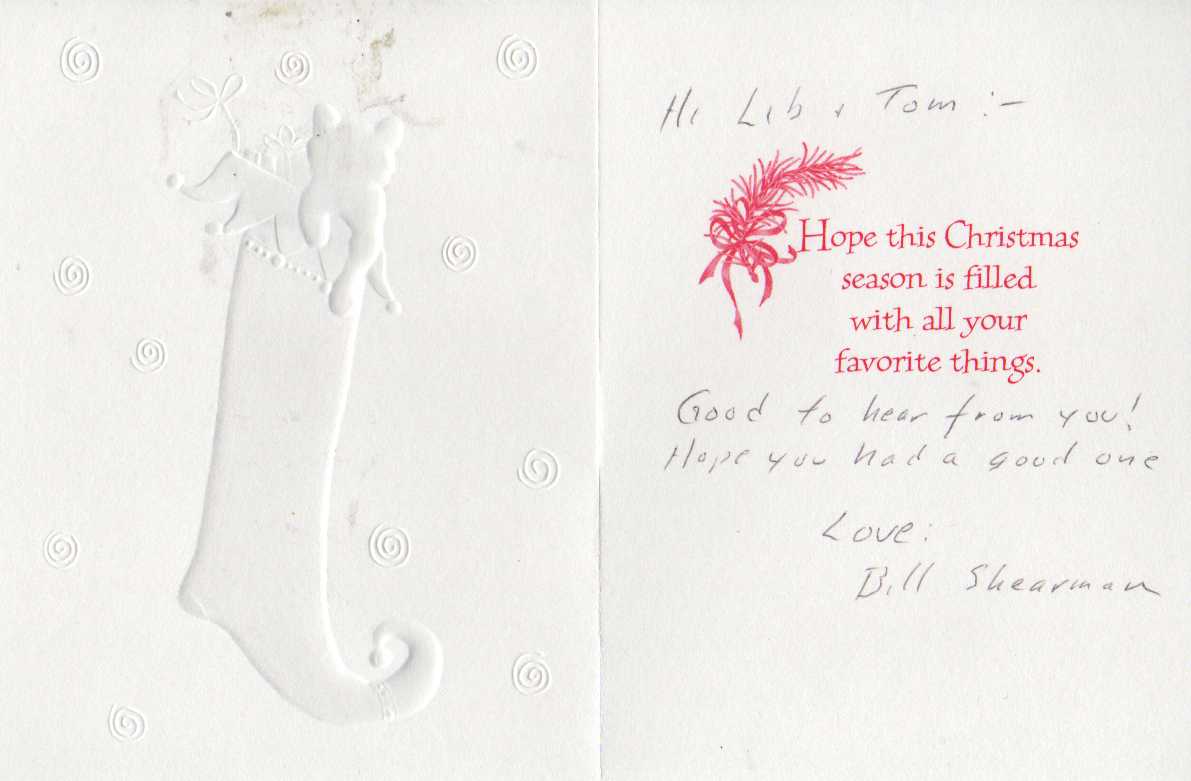 Hi Lib + Tom :-
Hope this Christmas
season is filled
with all your
favorite things.
Good to hear from you!
Hope you had a good one
Love:
Bill Shearman